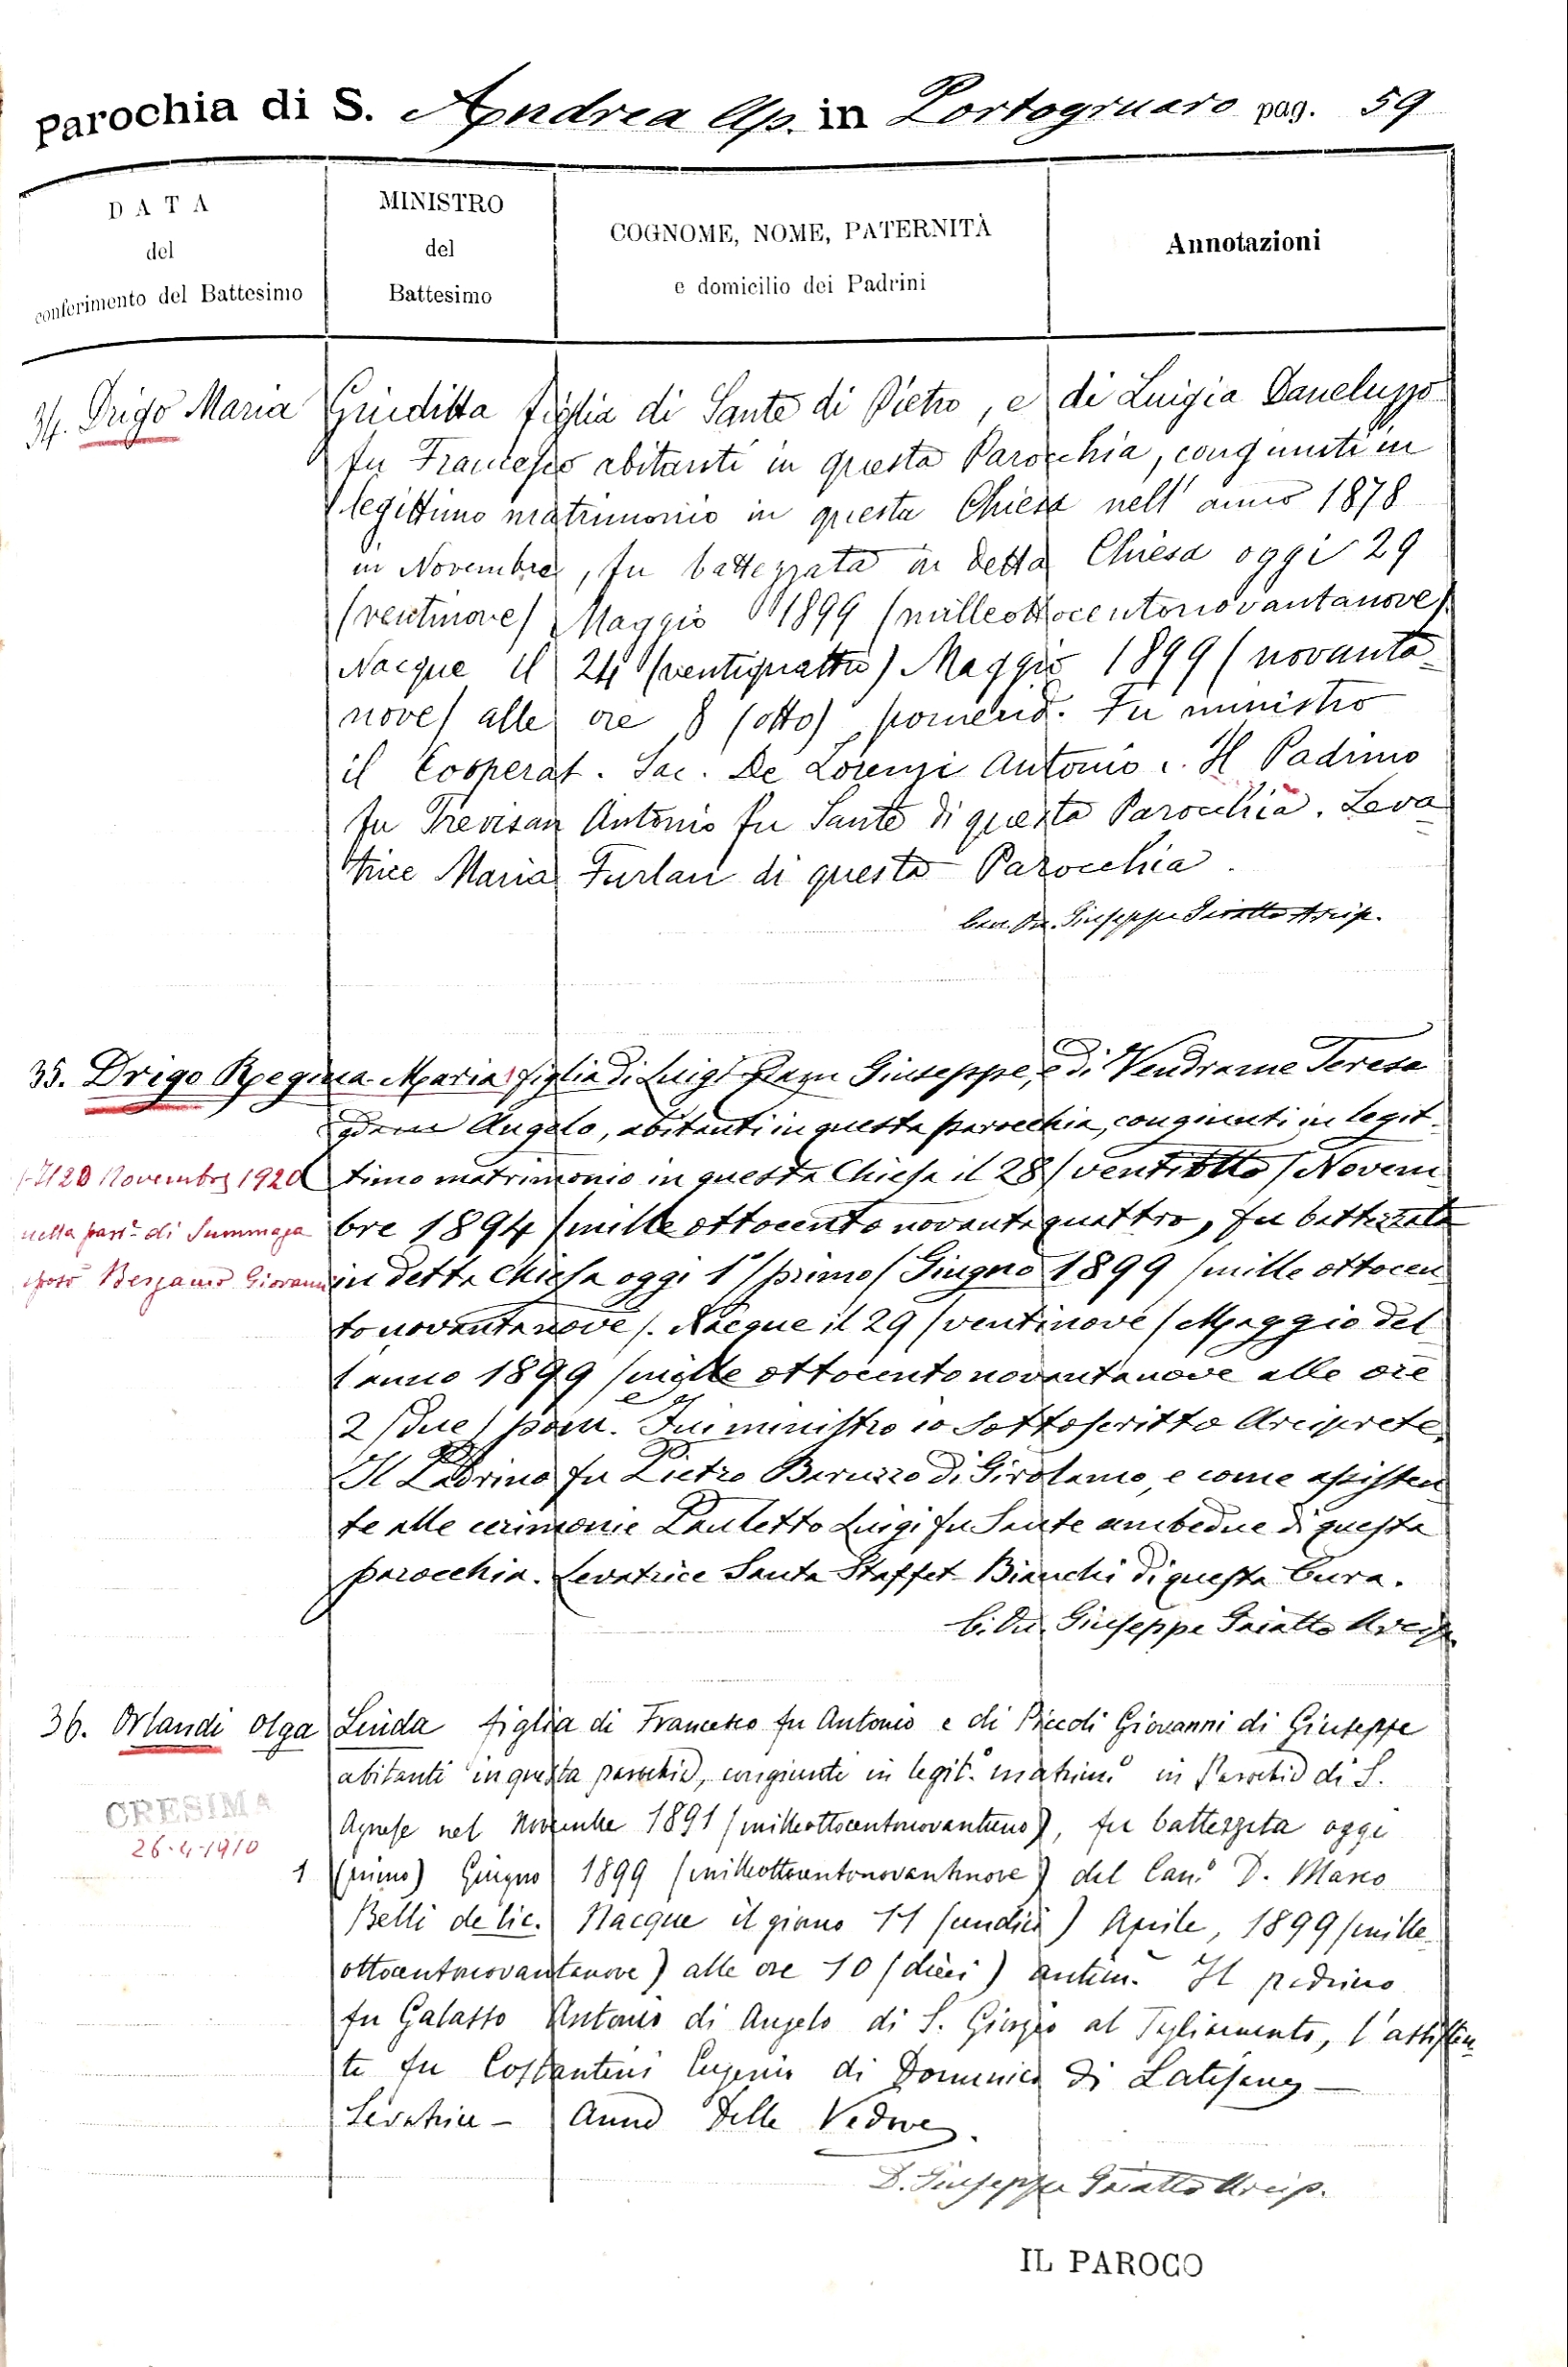 Parochia di S. Andrea Ap. in Portogruaro pag. 59
DATA
del
conferimento del Battesimo
MINISTRO
del
Battesimo
COGNOME, NOME, PATERNITÀ
e domicilio dei Padrini
Annotazioni
34. Drigo Maria Giuditta figlia di Sante di Pietro, e di Luigia Daneluzzo
fu Francesco abitanti in questa Parocchia, congiunti in
legittimo matrimonio in questa Chiesa nell' anno 1878
in Novembre, fu battezzata in detta Chiesa oggi 29
(ventinove) Maggio 1899 (milleottocentonovantanove).
Nacque il 24 (ventiquattro) Maggio 1899 (novanta-
nove) alle ore 8 (otto) pomerid. Fu ministro
il Cooperat. Sac. De Lorenzi Antonio. Il Padrino
fu Trevisan Antonio fu Sante di questa Parocchia. Leva=
trice Maria Furlan di questa Parocchia.
Giuseppe Giatto Arcip.
35. Drigo Regina Maria figlia di Luigi Giuseppe, e di Vendrame Teresa
qdam Angelo, abitanti in questa parocchia, congiunti in legit-
timo matrimonio in questa Chiesa il 28 (ventiotto) Novem
bre 1894 (mille ottocento novantaquattro, fu battezzata
in detta Chiesa oggi 1° (primo) Giugno 1899 (mille ottocen
tonovantanove). Nacque il 29 (ventinove) Maggio del
l'anno 1899 (mille ottocentonovantanove alle ore
2 (due) pom. Fui ministro io sottoscritto Arciprete.
Il Padrino fu Pietro Baruzzo di Girolamo, e come assisten
te alle cerimonie Pauletto Luigi fu Sante ambedue di questa
parocchia. Levatrice Santa Staffet Bianchi di questa Cura.
Giuseppe Giatto Arcip.
Il 20 Novembre 1920
nella parr. di Summaga
sposò Giovanni
36. Orlandi Olga Linda figlia di Francesco fu Antonio e di Piccoli Giovanni di Giuseppe
abitanti in questa parochia, congiunti in legit.° matrim.° in Parochia di S.
Agnese nel Novembre 1891 (milleottocentonovantuno), fu battezzata oggi
1 (primo) Giugno 1899 (milleottocentonovantanove) dal Can.° D. Marco
Belli de lic. Nacque il giorno 11 (undici) Aprile, 1899 (mille-
ottocentonovantanove) alle ore 10 (dieci) antim. Il padrino
fu Galasso Antonio di Angelo di S. Giorgio al Tagliamento, l'assisten
te fu Costantini Eugenio di Domenico di Latisana —
Levatrice — Anna Delle Vedove.
CRESIMA
26-4-1910
D. Giuseppe Giatto Arcip.
IL PAROCO